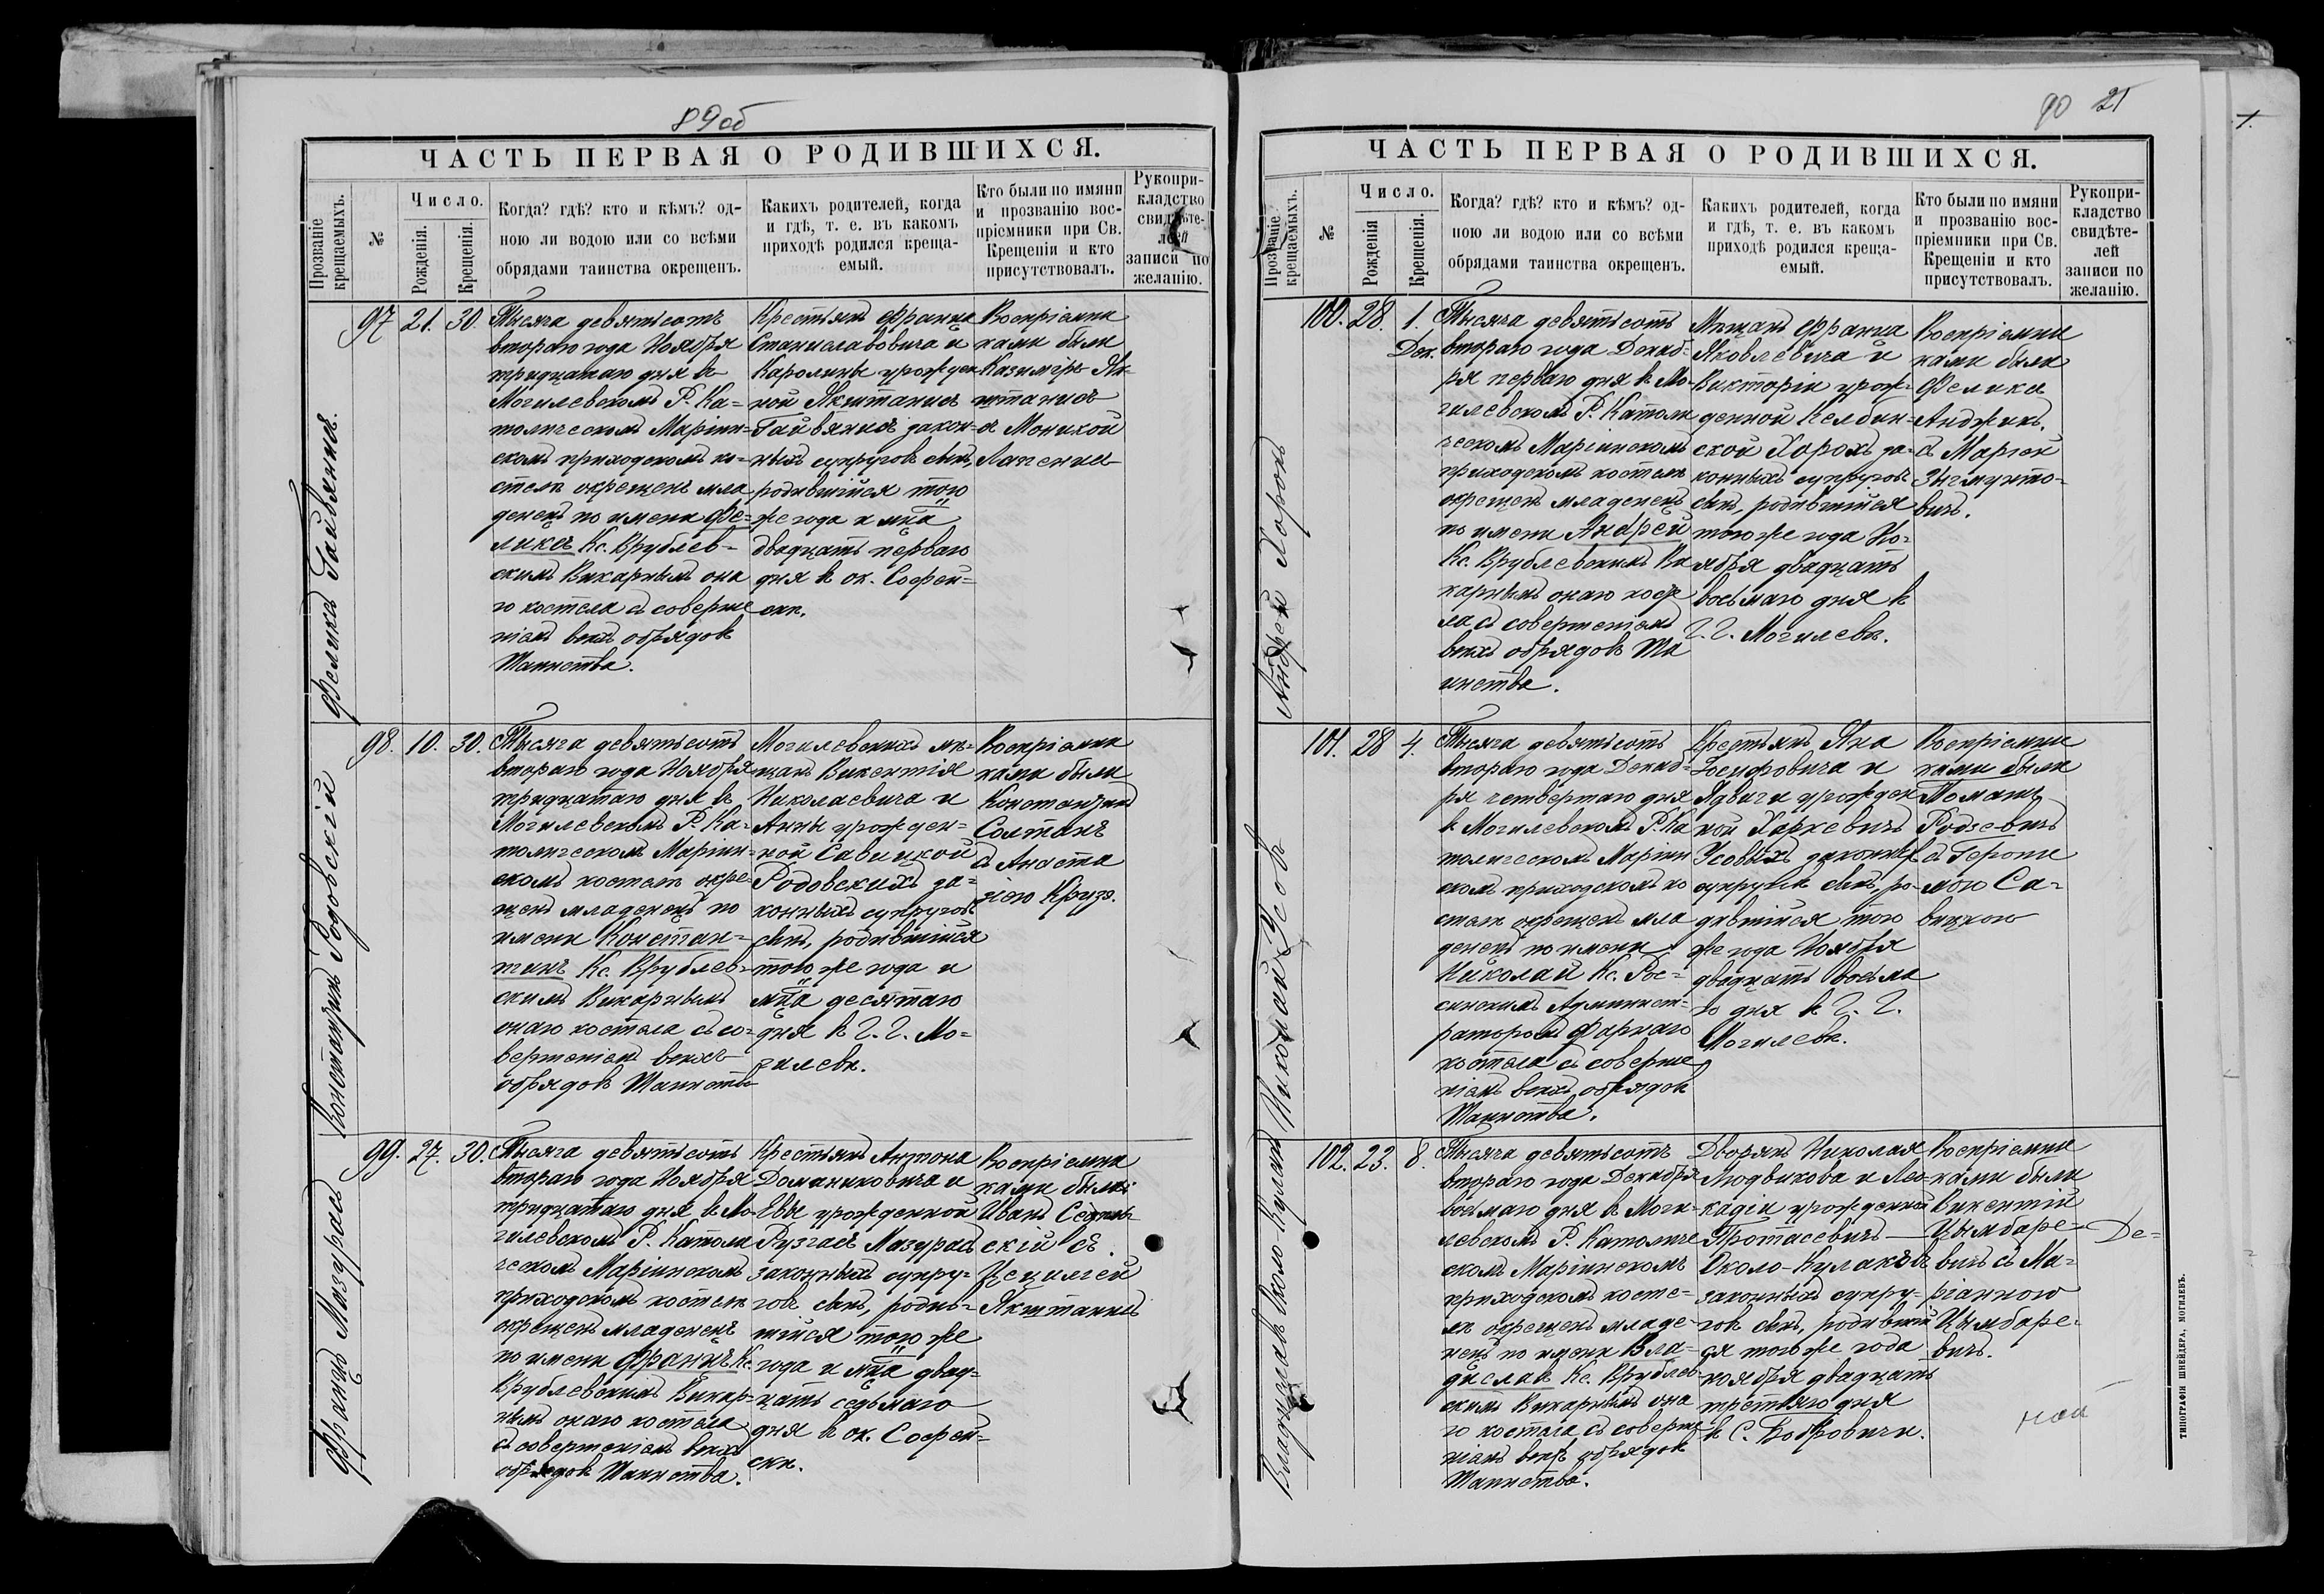 89об
ЧАСТЬ ПЕРВАЯ О РОДИВШИХСЯ.
Прозваніе
крещаемыхъ.
№
Число.
Рожденія.
Крещенія.
Когда? гдѣ? кто и кѣмъ? од-
ною ли водою или со всѣми
обрядами таинства окрещенъ.
Какихъ родителей, когда
и гдѣ, т. е. въ какомъ
приходѣ родился креща-
емый.
Кто были по имяни
и прозванію вос-
пріемники при Св.
Крещеніи и кто
присутствовалъ.
Рукопри-
кладство
свидѣте-
лей
записи по
желанію.
Феликсъ Гайвянисъ.
97
21.
30.
Тысяча девятьсотъ
второго года Ноября
тридцатаго дня въ
Могилевскомъ Р. Ка=
толическомъ Маріин=
скомъ приходскомъ ко=
стелѣ окрещенъ мла
денецъ по имени Фе=
ликсъ Кс. Врублев=
скимъ Викарнымъ она
го костела съ соверше
ніемъ всѣхъ обрядовъ
Таинства.
Крестьянъ Франца
Станиславовича и
Каролины урожден
ной Якштанисъ
Гайвянисъ закон=
ныхъ супруговъ сынъ,
родившійся того
же года и мца
двадцать перваго
дня въ ок. Софей=
скѣ.
Воспріемни
ками были
Казиміръ Як=
штанисъ
съ Моникой
98.
10.
30.
Константинъ Родовскій
Тысяча девятьсотъ
второго года Ноября
тридцатаго дня въ
Могилевскомъ Р. Ка=
толическомъ Маріин=
скомъ костелѣ окре=
щенъ младенецъ по
имени Констан=
тинъ Кс. Врублев=
скимъ Викарнымъ
онаго костела съ со=
вершеніемъ всѣхъ
обрядовъ Таинства
Могилевскихъ мѣ=
щанъ Викентія
Николаевича и
Анны урожден=
ной Савицкой
Родовскихъ за=
конныхъ супруговъ
сынъ, родившійся
того же года и
мца десятаго
дня въ Г. Г. Мо=
гилевѣ.
Воспріемни
ками были
Константинъ
Солтанъ
съ Анаста
зіею Крузе.
99.
27.
30.
Францъ Мазурасъ
Тысяча девятьсотъ
второго года Ноября
тридцатаго дня въ Мо
гилевскомъ Р. Католи
ческомъ Маріинскомъ
приходскомъ костелѣ
окрещенъ младенецъ
по имени Францъ Кс.
Врублевскимъ Викар=
нымъ онаго костела
съ совершеніемъ всѣхъ
обрядовъ Таинства.
Крестьянъ Антона
Доминиковича и
Евы урожденной
Рузгасъ Мазурасъ
законныхъ супру=
говъ сынъ, родив=
шійся того же
года и мца двад=
цать седьмаго
дня въ ок. Софей=
скѣ.
Воспріемни
ками были
Иванъ
скій съ
Цециліей
Якштанисъ
90 21
1.
ЧАСТЬ ПЕРВАЯ О РОДИВШИХСЯ.
Прозваніе
крещаемыхъ.
№
Число.
Рожденія
Крещенія.
Когда? гдѣ? кто и кѣмъ? од-
ною ли водою или со всѣми
обрядами таинства окрещенъ.
Какихъ родителей, когда
и гдѣ, т. е. въ какомъ
приходѣ родился креща-
емый.
Кто были по имяни
и прозванію вос-
пріемники при Св.
Крещеніи и кто
присутствовалъ.
Рукопри-
кладство
свидѣте-
лей
записи по
желанію.
Андрей Хорохъ
100.
28.
1.
Дек.
Тысяча девятьсотъ
второго года Декаб=
ря перваго дня въ Мо=
гилевскомъ Р. Католи
ческомъ Маріинскомъ
приходскомъ костелѣ
окрещенъ младенецъ
по имени Андрей
Кс. Врублевскимъ Ви
карнымъ онаго косте
ла съ совершеніемъ
всѣхъ обрядовъ Та
инства.
Мѣщанъ Франца
Яковлевича и
Викторіи урож=
денной Келбин=
ской Хорохъ за=
конныхъ супруговъ
сынъ, родившійся
того же года Но=
ября двадцать
восьмаго дня въ
Г. Г. Могилевѣ.
Воспріемни
ками были
Феликсъ
Анджикъ.
съ Маріей
Зыгмунто=
вичъ.
101.
28
4.
Николай Усовъ
Тысяча девятьсотъ
второго года Декаб=
ря четвертаго дня
въ Могилевскомъ Р. Ка
толическомъ Маріин
скомъ приходскомъ ко
стелѣ окрещенъ мла
денецъ по имени
Николай Кс. Рос=
синскимъ Админист=
раторомъ Фарнаго
костела съ соверше
ніемъ всѣхъ обрядовъ
Таинства.
Крестьянъ Яна
Іосифовича и
Ядвиги урожден
ной Харкевичъ
Усовыхъ законныхъ
супруговъ сынъ, ро=
дившійся того
же года Ноября
двадцать восьма
го дня въ Г. Г.
Могилевѣ.
Воспріемни
ками были
Томашъ
Родзевичъ
съ Герони
мою Са=
вицкою
102.
23.
8.
Владиславъ Около-Кулакъ
Тысяча девятьсотъ
второго года Декабря
восьмаго дня въ Моги=
левскомъ Р. Католиче
скомъ Маріинскомъ
приходскомъ косте=
лѣ окрещенъ младе=
нецъ по имени Вла=
диславъ Кс. Врублев
скимъ Викарнымъ она
го костела съ соверше
ніемъ всѣхъ обрядовъ
Таинства.
Дворянъ Николая
Людвикова и Лео=
кадіи урожденной
Протасевичъ —
Около-Кулаковъ
законныхъ супру=
говъ сынъ, родившій
ся того же года
ноября двадцать
третьяго дня
въ С. Бобровичи.
Воспріемни
ками были
Викентій
Цымбаре=
вичъ съ Ма=
ріанною
Цымбаре=
вичъ.
Де=
ной
ТИПОГРАФІЯ ШНЕЙДЕРА. МОГИЛЕВЪ.